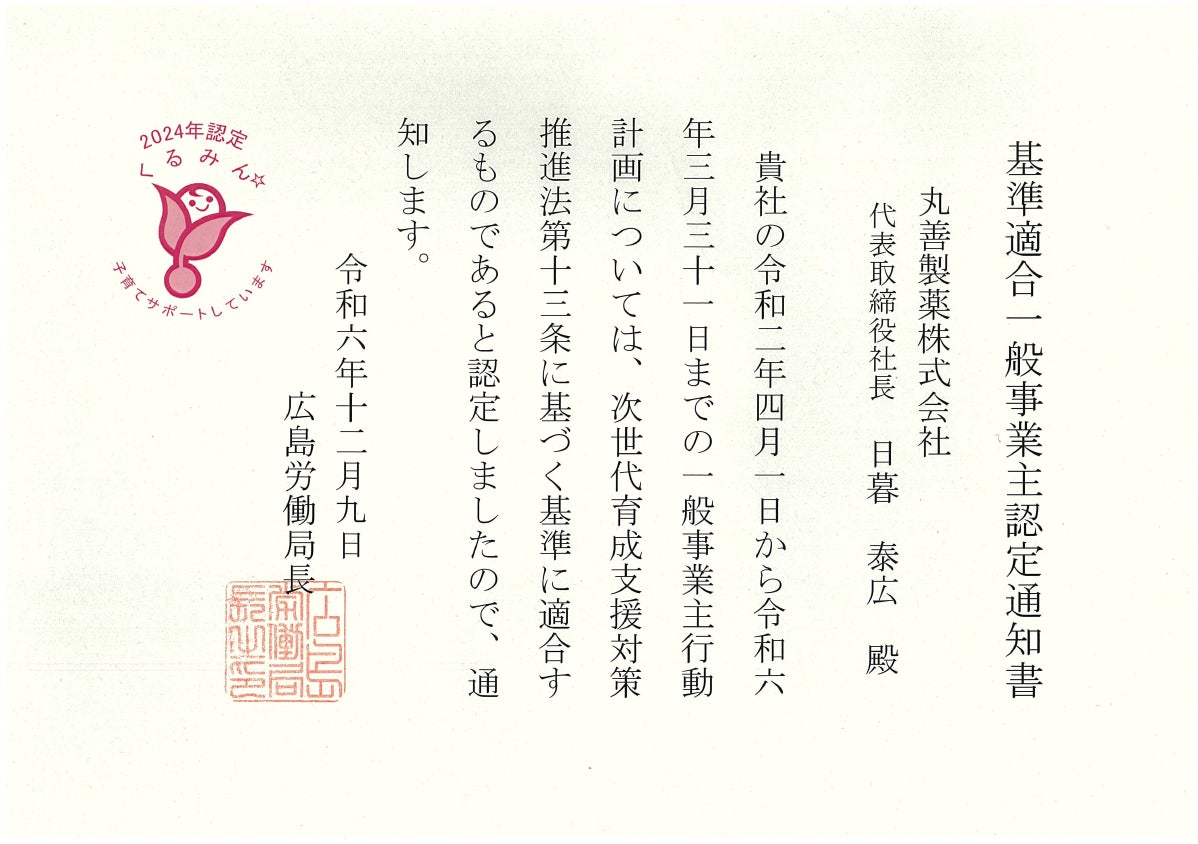 基準適合一般事業主認定通知書
丸善製薬株式会社
代表取締役社長 日暮 泰広 殿
貴社の令和二年四月一日から令和六
年三月三十一日までの一般事業主行動
計画については、次世代育成支援対策
推進法第十三条に基づく基準に適合す
るものであると認定しましたので、通
知します。
令和六年十二月九日
広島労働局長
広島
労働局
長之印
2024年認定
くるみん☆
子育てサポートしています